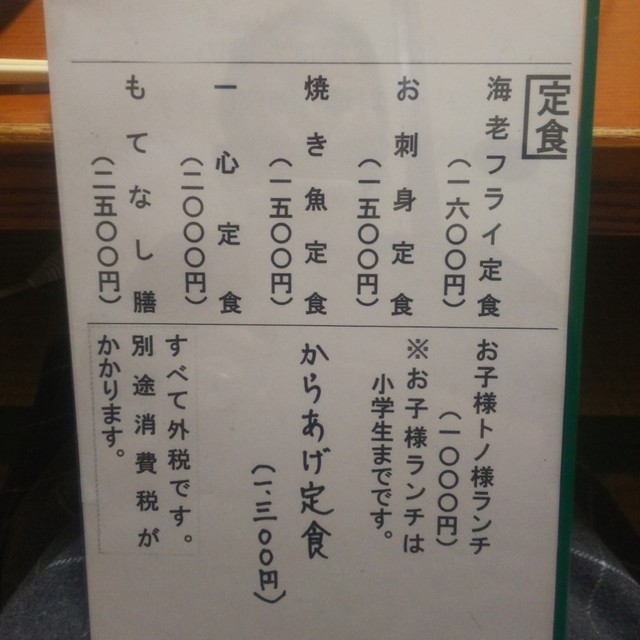 定食
海老フライ定食
(一六〇〇円)
お刺身定食
(一五〇〇円)
焼き魚定食
(一五〇〇円)
一心定食
(二〇〇〇円)
もてなし膳
(二五〇〇円)
お子様トノ様ランチ
(一〇〇〇円)
※お子様ランチは
小学生までです。
からあげ定食
(一、三〇〇円)
すべて外税です。
別途消費税が
かかります。